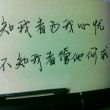 知我者为我心忧
不知我者管他何求